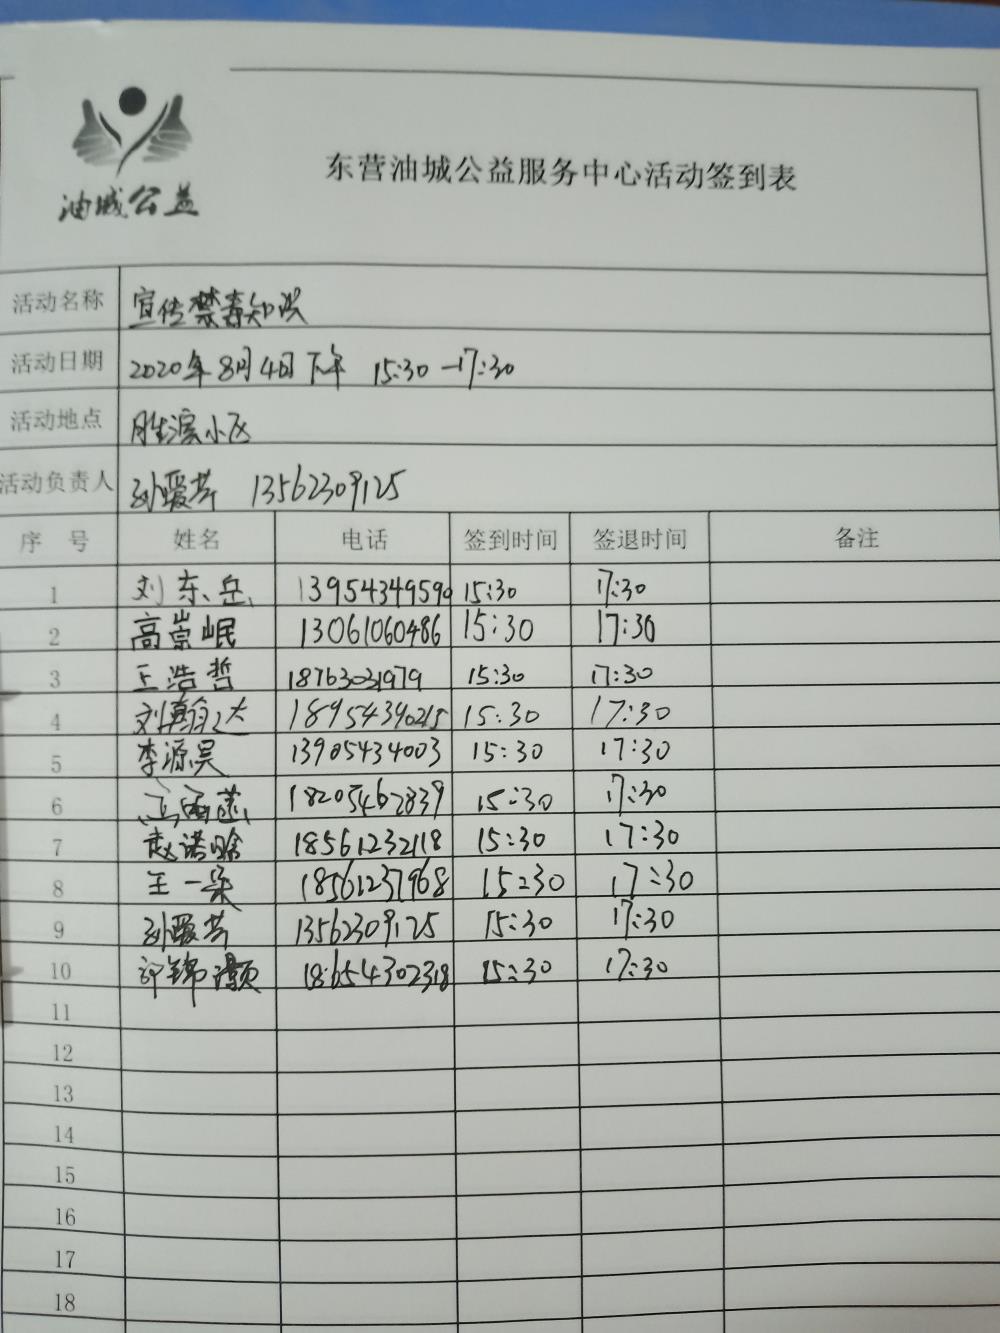 油城公益
东营油城公益服务中心活动签到表
活动名称 宣传禁毒知识
活动日期 2020年8月4日下午 15:30-17:30
活动地点 胜滨小区
活动负责人 孙爱芹 13562309125
序号 姓名 电话 签到时间 签退时间 备注
1 刘东岳 13954349590 15:30 17:30
2 高崇岷 13061060486 15:30 17:30
3 王浩哲 18763031979 15:30 17:30
4 刘翰达 18954390215 15:30 17:30
5 李源昊 13905434003 15:30 17:30
6 18205462839 15:30 17:30
7 赵诺晗 18561232118 15:30 17:30
8 王一朵 18561237968 15:30 17:30
9 孙爱芹 13562309125 15:30 17:30
10 18654302318 15:30 17:30
11
12
13
14
15
16
17
18